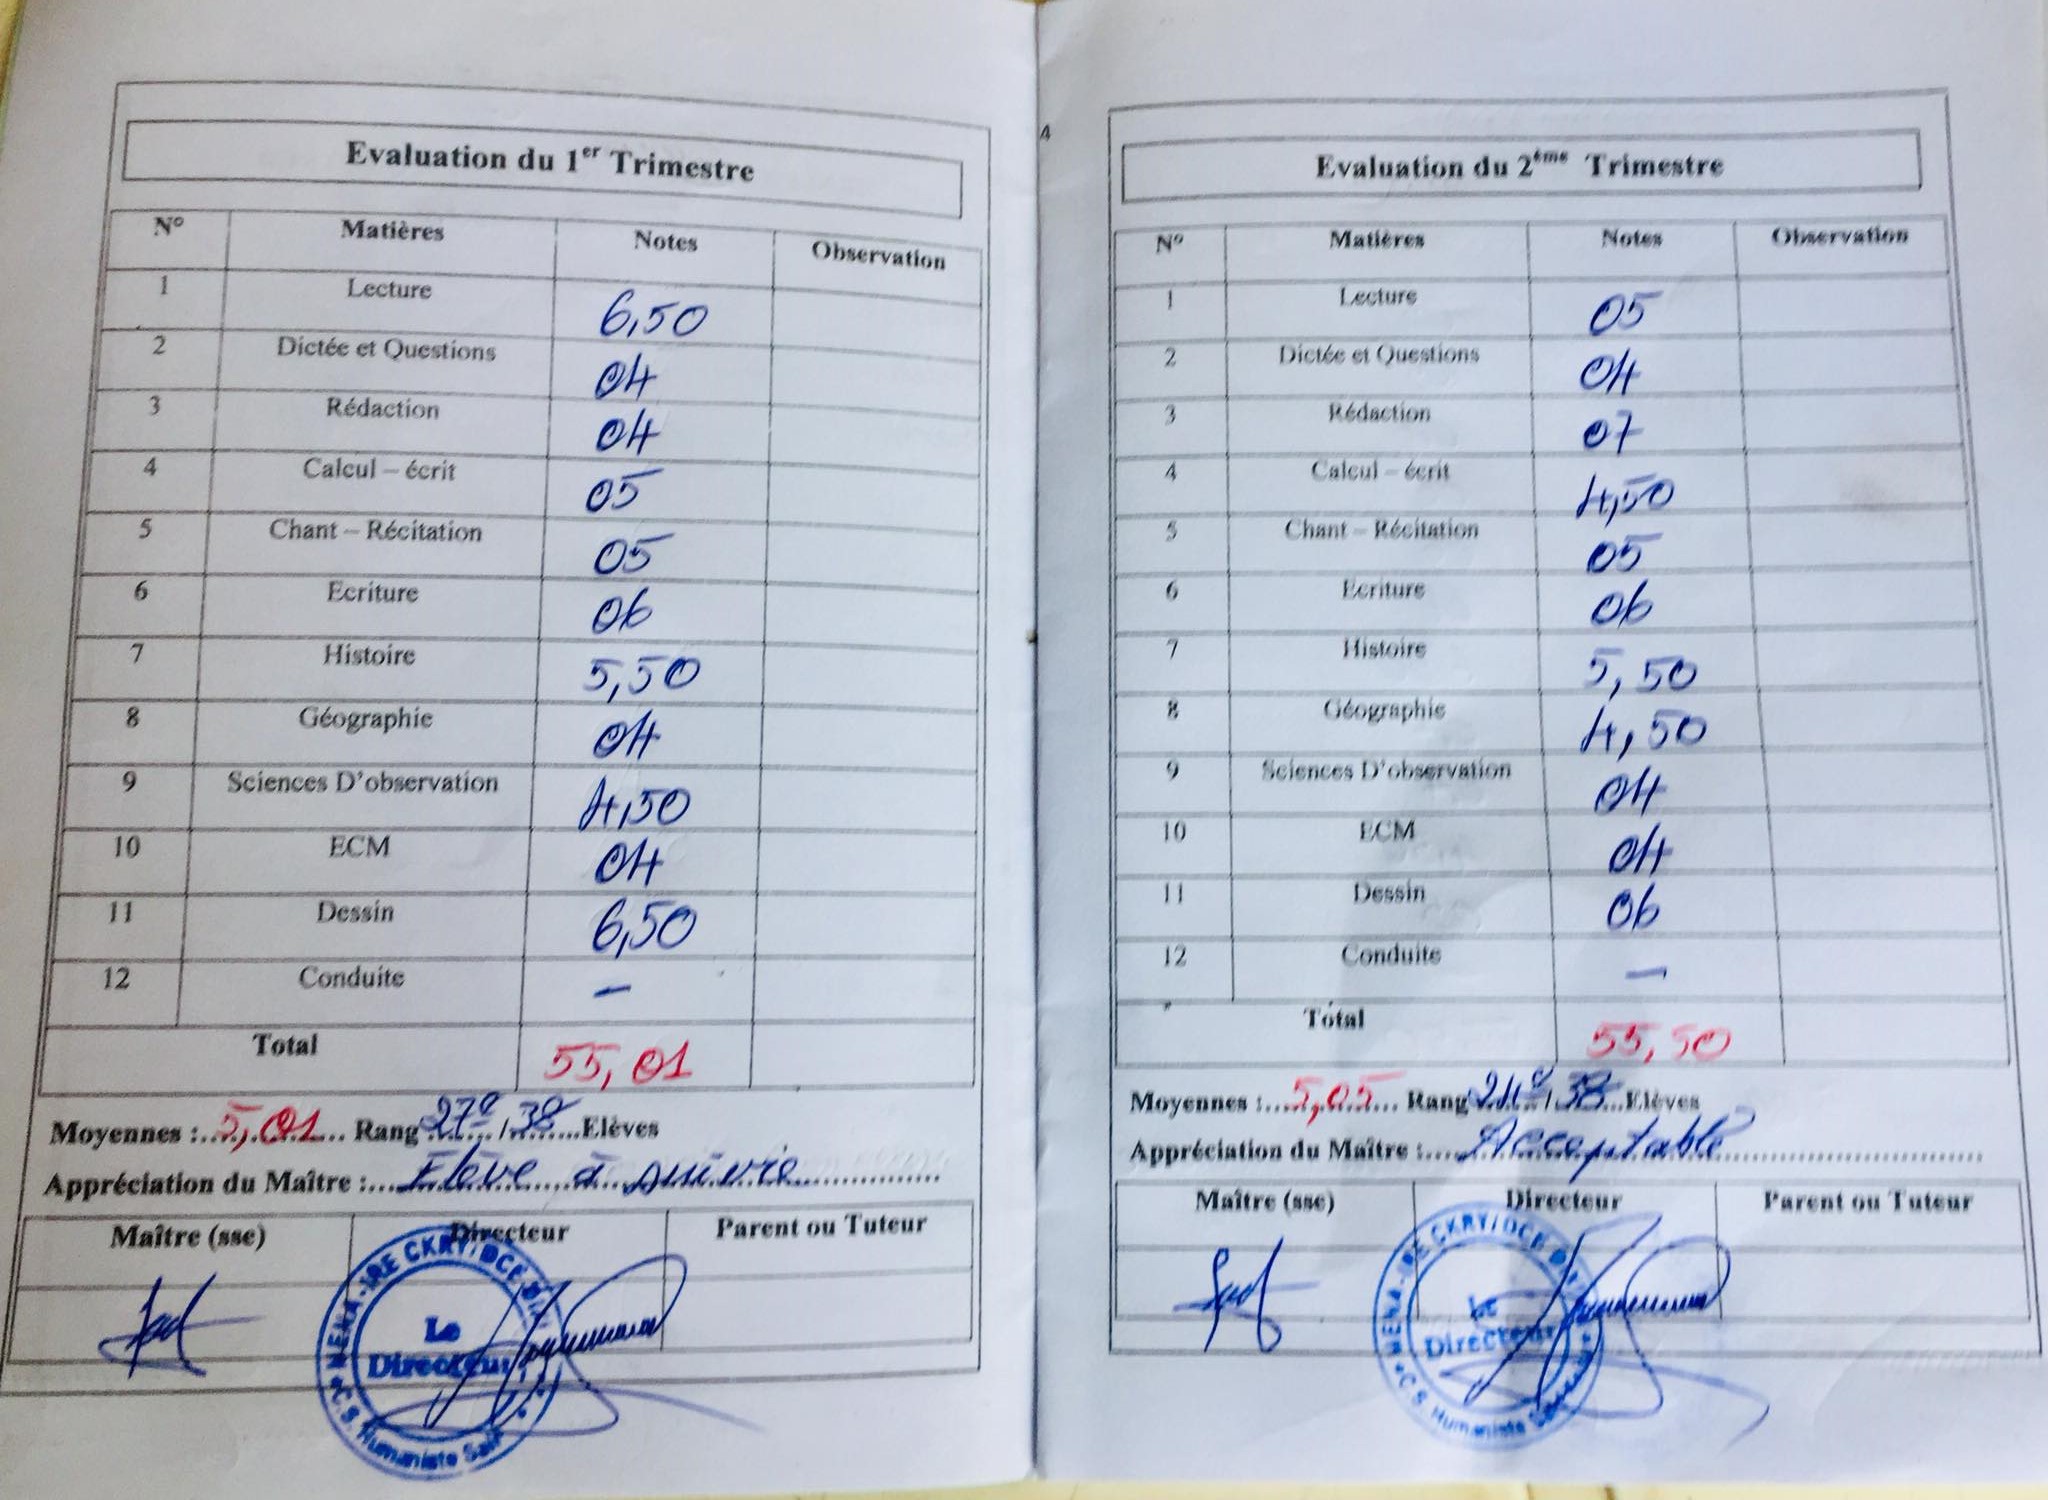 Evaluation du 1er Trimestre
N° Matières Notes Observation
1 Lecture 6,50
2 Dictée et Questions 04
3 Rédaction 04
4 Calcul – écrit 05
5 Chant – Récitation 05
6 Ecriture 06
7 Histoire 5,50
8 Géographie 04
9 Sciences D'observation 4,50
10 ECM 04
11 Dessin 6,50
12 Conduite –
Total 55,01
Moyennes :..5,01.. Rang 27e / 38 Elèves
Appréciation du Maître :... Elève à suivre
Maître (sse) Directeur Parent ou Tuteur
MENA-IRE CKRY/DCE
Le
Directeur
C.S. Humaniste
4
Evaluation du 2ème Trimestre
N° Matières Notes Observation
1 Lecture 05
2 Dictée et Questions 04
3 Rédaction 07
4 Calcul – écrit 4,50
5 Chant – Récitation 05
6 Ecriture 06
7 Histoire 5,50
8 Géographie 4,50
9 Sciences D'observation 04
10 ECM 04
11 Dessin 06
12 Conduite –
Total 55,50
Moyennes :..5,05.. Rang 24e / 38 Elèves
Appréciation du Maître :... Acceptable
Maître (sse) Directeur Parent ou Tuteur
MENA-IRE CKRY/DCE
Le
Directeur
C.S. Humaniste